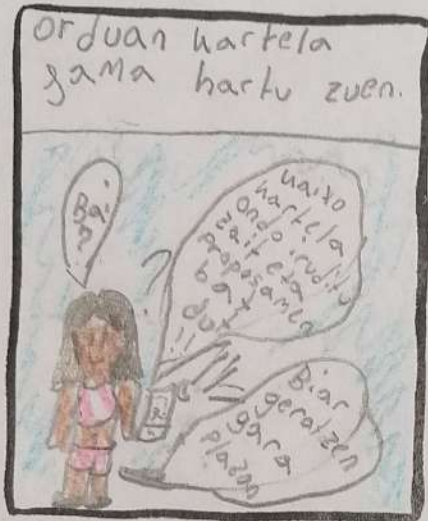 orduan kartela
gama hartu zuen.
Bai
?
kaixo
kartela
ondo iruditu
zait eta
proposamen
bat
dut
!!!
Biar
geratzen
gara
plazan